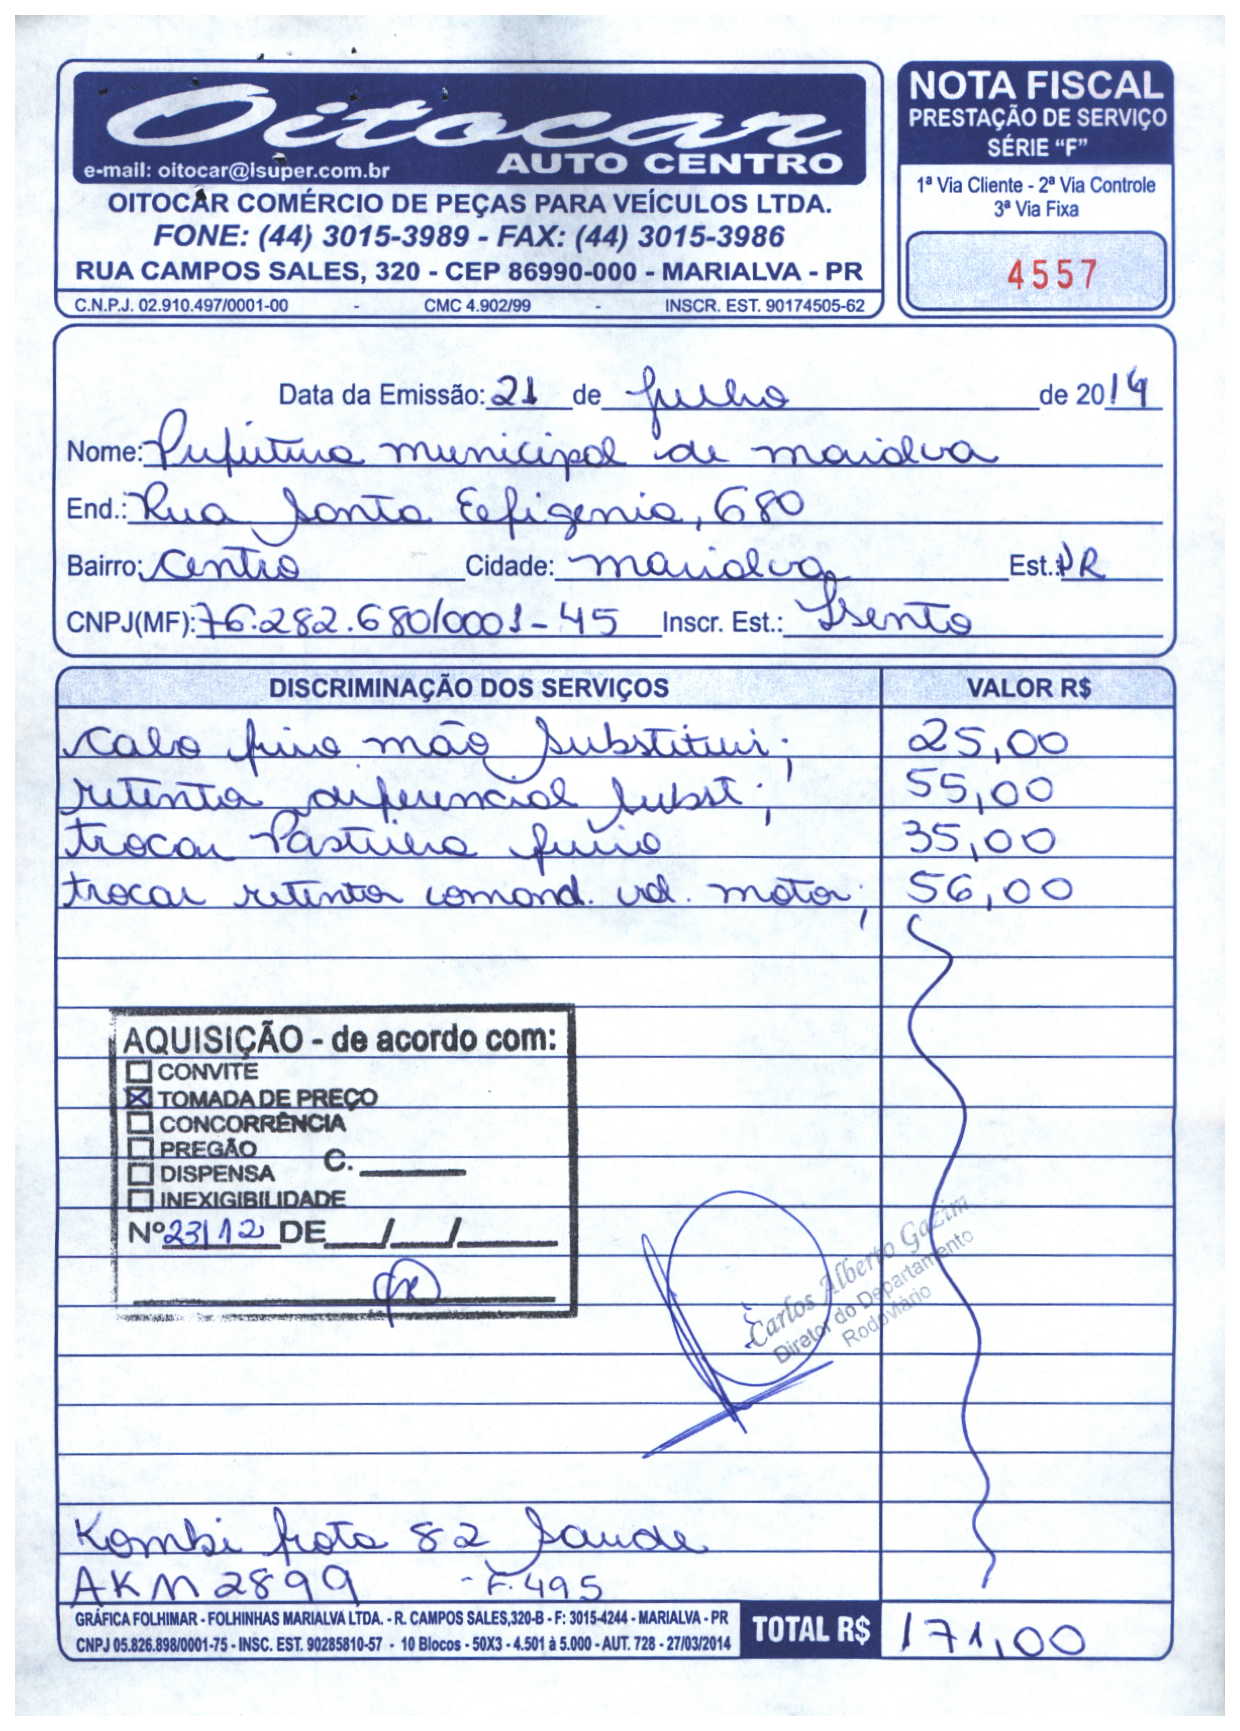 Oitocar
AUTO CENTRO
e-mail: oitocar@lsuper.com.br
OITOCAR COMÉRCIO DE PEÇAS PARA VEÍCULOS LTDA.
FONE: (44) 3015-3989 - FAX: (44) 3015-3986
RUA CAMPOS SALES, 320 - CEP 86990-000 - MARIALVA - PR
C.N.P.J. 02.910.497/0001-00 - CMC 4.902/99 - INSCR. EST. 90174505-62
NOTA FISCAL
PRESTAÇÃO DE SERVIÇO
SÉRIE “F”
1ª Via Cliente - 2ª Via Controle
3ª Via Fixa
4557
Data da Emissão: 21 de Julho de 2014
Nome: Prefeitura municipal de marialva
End.: Rua Santa Eefigenia, 680
Bairro: Centro Cidade: marialva Est.: PR
CNPJ(MF): 76.282.680/0001-45 Inscr. Est.: Isento
DISCRIMINAÇÃO DOS SERVIÇOS VALOR R$
Cabo freio mão Substituir; 25,00
retentor diferencial Subst; 55,00
trocar Pastilha freio 35,00
trocar retentor comand. vol. motor; 56,00
AQUISIÇÃO - de acordo com:
CONVITE
TOMADA DE PREÇO
CONCORRÊNCIA
PREGÃO C.
DISPENSA
INEXIGIBILIDADE
Nº 23/12 DE / /
Carlos Alberto Gazim
Diretor do Departamento
Rodoviário
Kombi frota 82 Saude
AKM 2899 - F. 495
GRÁFICA FOLHIMAR - FOLHINHAS MARIALVA LTDA. - R. CAMPOS SALES,320-B - F: 3015-4244 - MARIALVA - PR
CNPJ 05.826.898/0001-75 - INSC. EST. 90285810-57 - 10 Blocos - 50X3 - 4.501 à 5.000 - AUT. 728 - 27/03/2014
TOTAL R$ 171,00